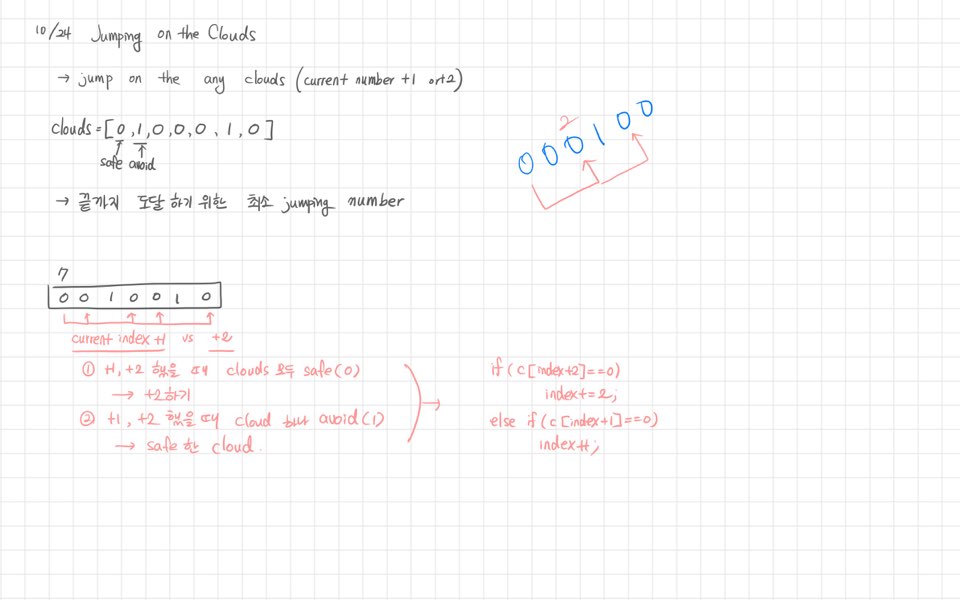 10/24 Jumping on the Clouds
→ jump on the any clouds (current number +1 or +2)
clouds = [0,1,0,0,0,1,0]
safe avoid
→ 끝까지 도달하기 위한 최소 jumping number
2
0 0 0 1 0 0
7
0 0 1 0 0 1 0
current index +1 vs +2
① +1, +2 했을 때 clouds 모두 safe(0)
→ +2하기
② +1, +2 했을 때 cloud but avoid(1)
→ safe 한 cloud.
→
if (c[index+2]==0)
index+=2;
else if (c[index+1]==0)
index++;